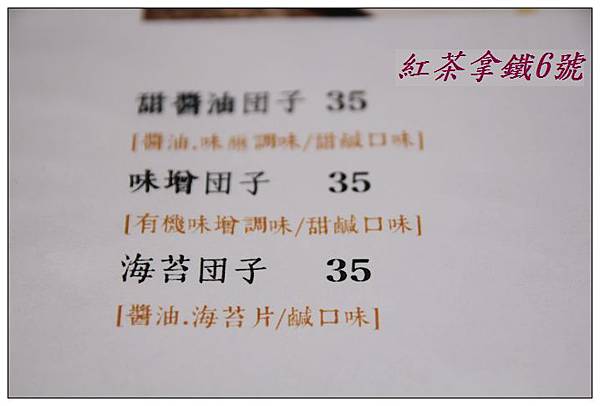 紅茶拿鐵6號
甜醬油団子 35
[醬油.味醂調味/甜鹹口味]
味增団子 35
[有機味增調味/甜鹹口味]
海苔団子 35
[醬油.海苔片/鹹口味]